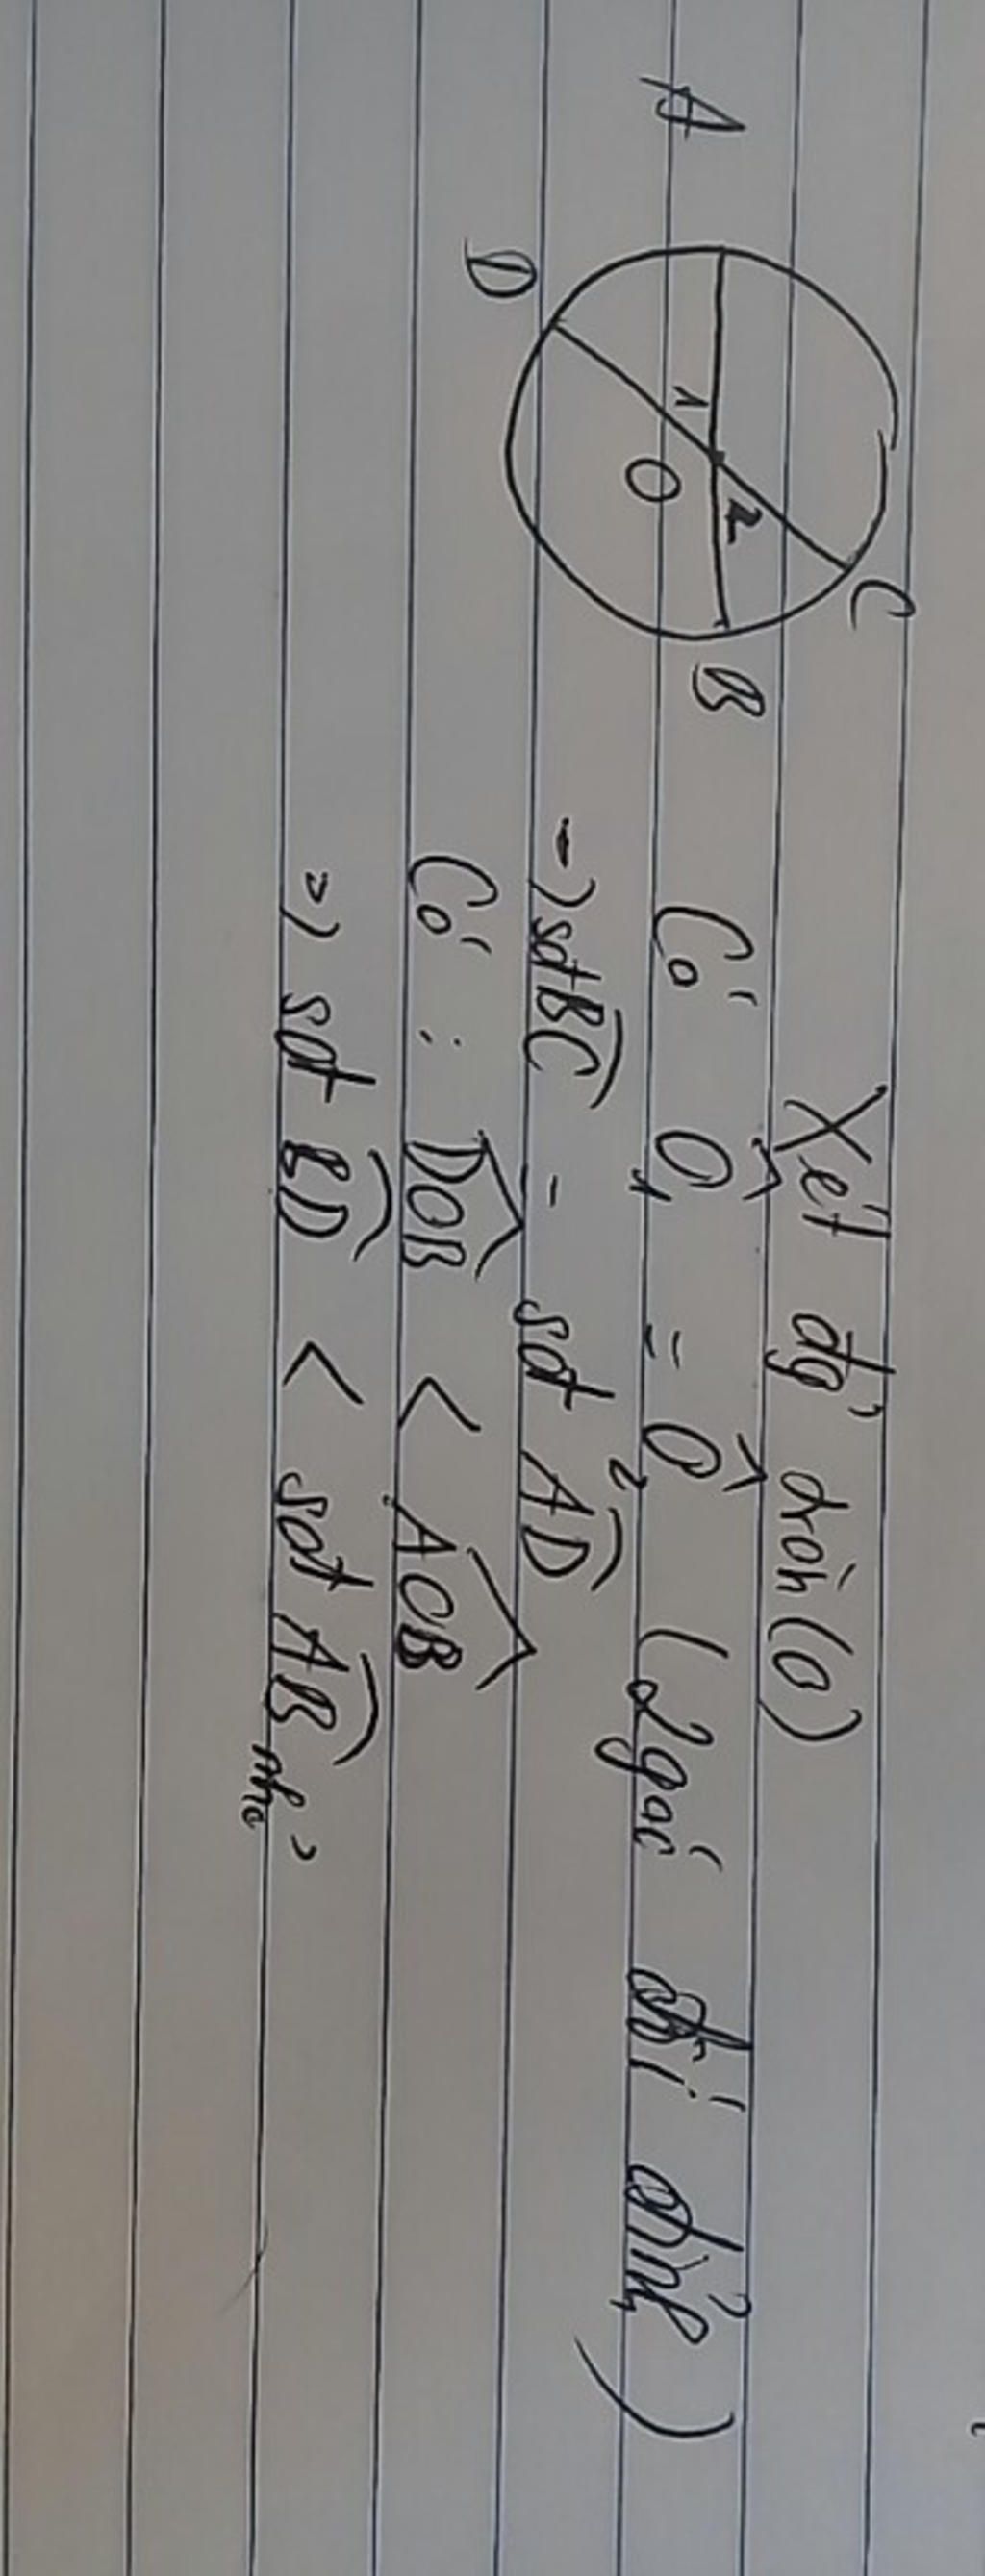 A
D
C
B
1
2
O
Xét đg' tròn (O)
Có Ô₁ = Ô₂ (2 góc đối đỉnh)
-) sđ BC = sđ AD
Có : DOB < AOB
=) sđ BD < sđ AB nhỏ